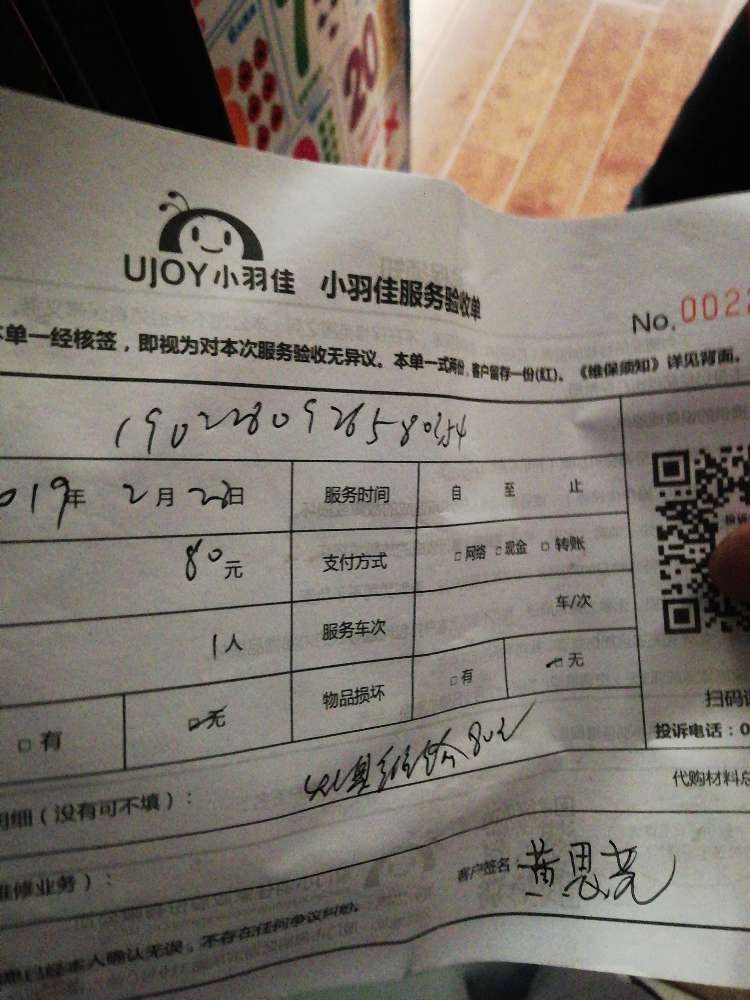 20
UJOY小羽佳 小羽佳服务验收单
No. 0022
本单一经核签，即视为对本次服务验收无异议。本单一式两份，客户留存一份(红)。《维保须知》详见背面。
019年 2月 28日 服务时间 自 至 止
80元 支付方式 □网络 □现金 □转账
1人 服务车次 车/次
□有 □无 物品损坏 □有 □无
扫码
投诉电话：0
明细（没有可不填）： 80元
代购材料总
维修业务）：
客户签名： 黄思亮
已经本人确认无误，不存在任何争议纠纷。